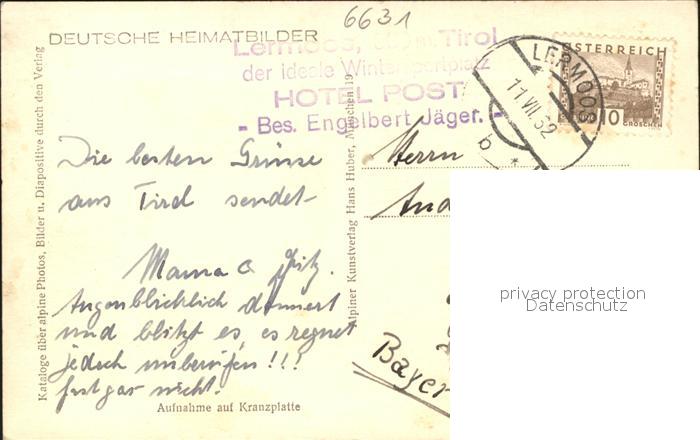 6631
DEUTSCHE HEIMATBILDER
Lermoos, Tirol
der ideale Wintersportplatz
HOTEL POST
- Bes. Engelbert Jäger. -
LERMOOS
11.VII.32
b *
ÖSTERREICH
10
GROSCHEN
Kataloge über alpine Photos, Bilder u. Diapositive durch den Verlag
Alpiner Kunstverlag Hans Huber, München 19
Die besten Grüsse
aus Tirol sendet
Mama & Fritz.
Augenblicklich donnert
und blitzt es, es regnet
jedoch unberufen!!!
fast gar nicht.
Aufnahme auf Kranzplatte
Herrn
And
Bayer
privacy protection
Datenschutz